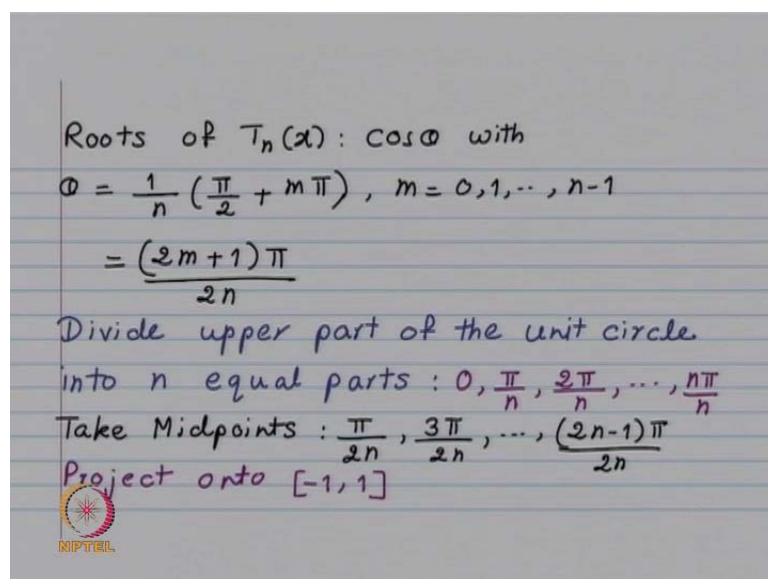 Roots of Tn(x): cosθ with
θ = 1/n (π/2 + mπ), m = 0,1,..,n-1
= (2m+1)π/2n
Divide upper part of the unit circle
into n equal parts : 0, π/n, 2π/n, ..., nπ/n
Take Midpoints : π/2n, 3π/2n, ..., (2n-1)π/2n
Project onto [-1,1]
NPTEL